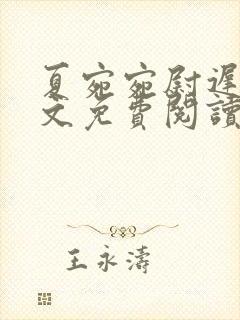 夏宛宛尉遲
文免費閱讀
王永濤